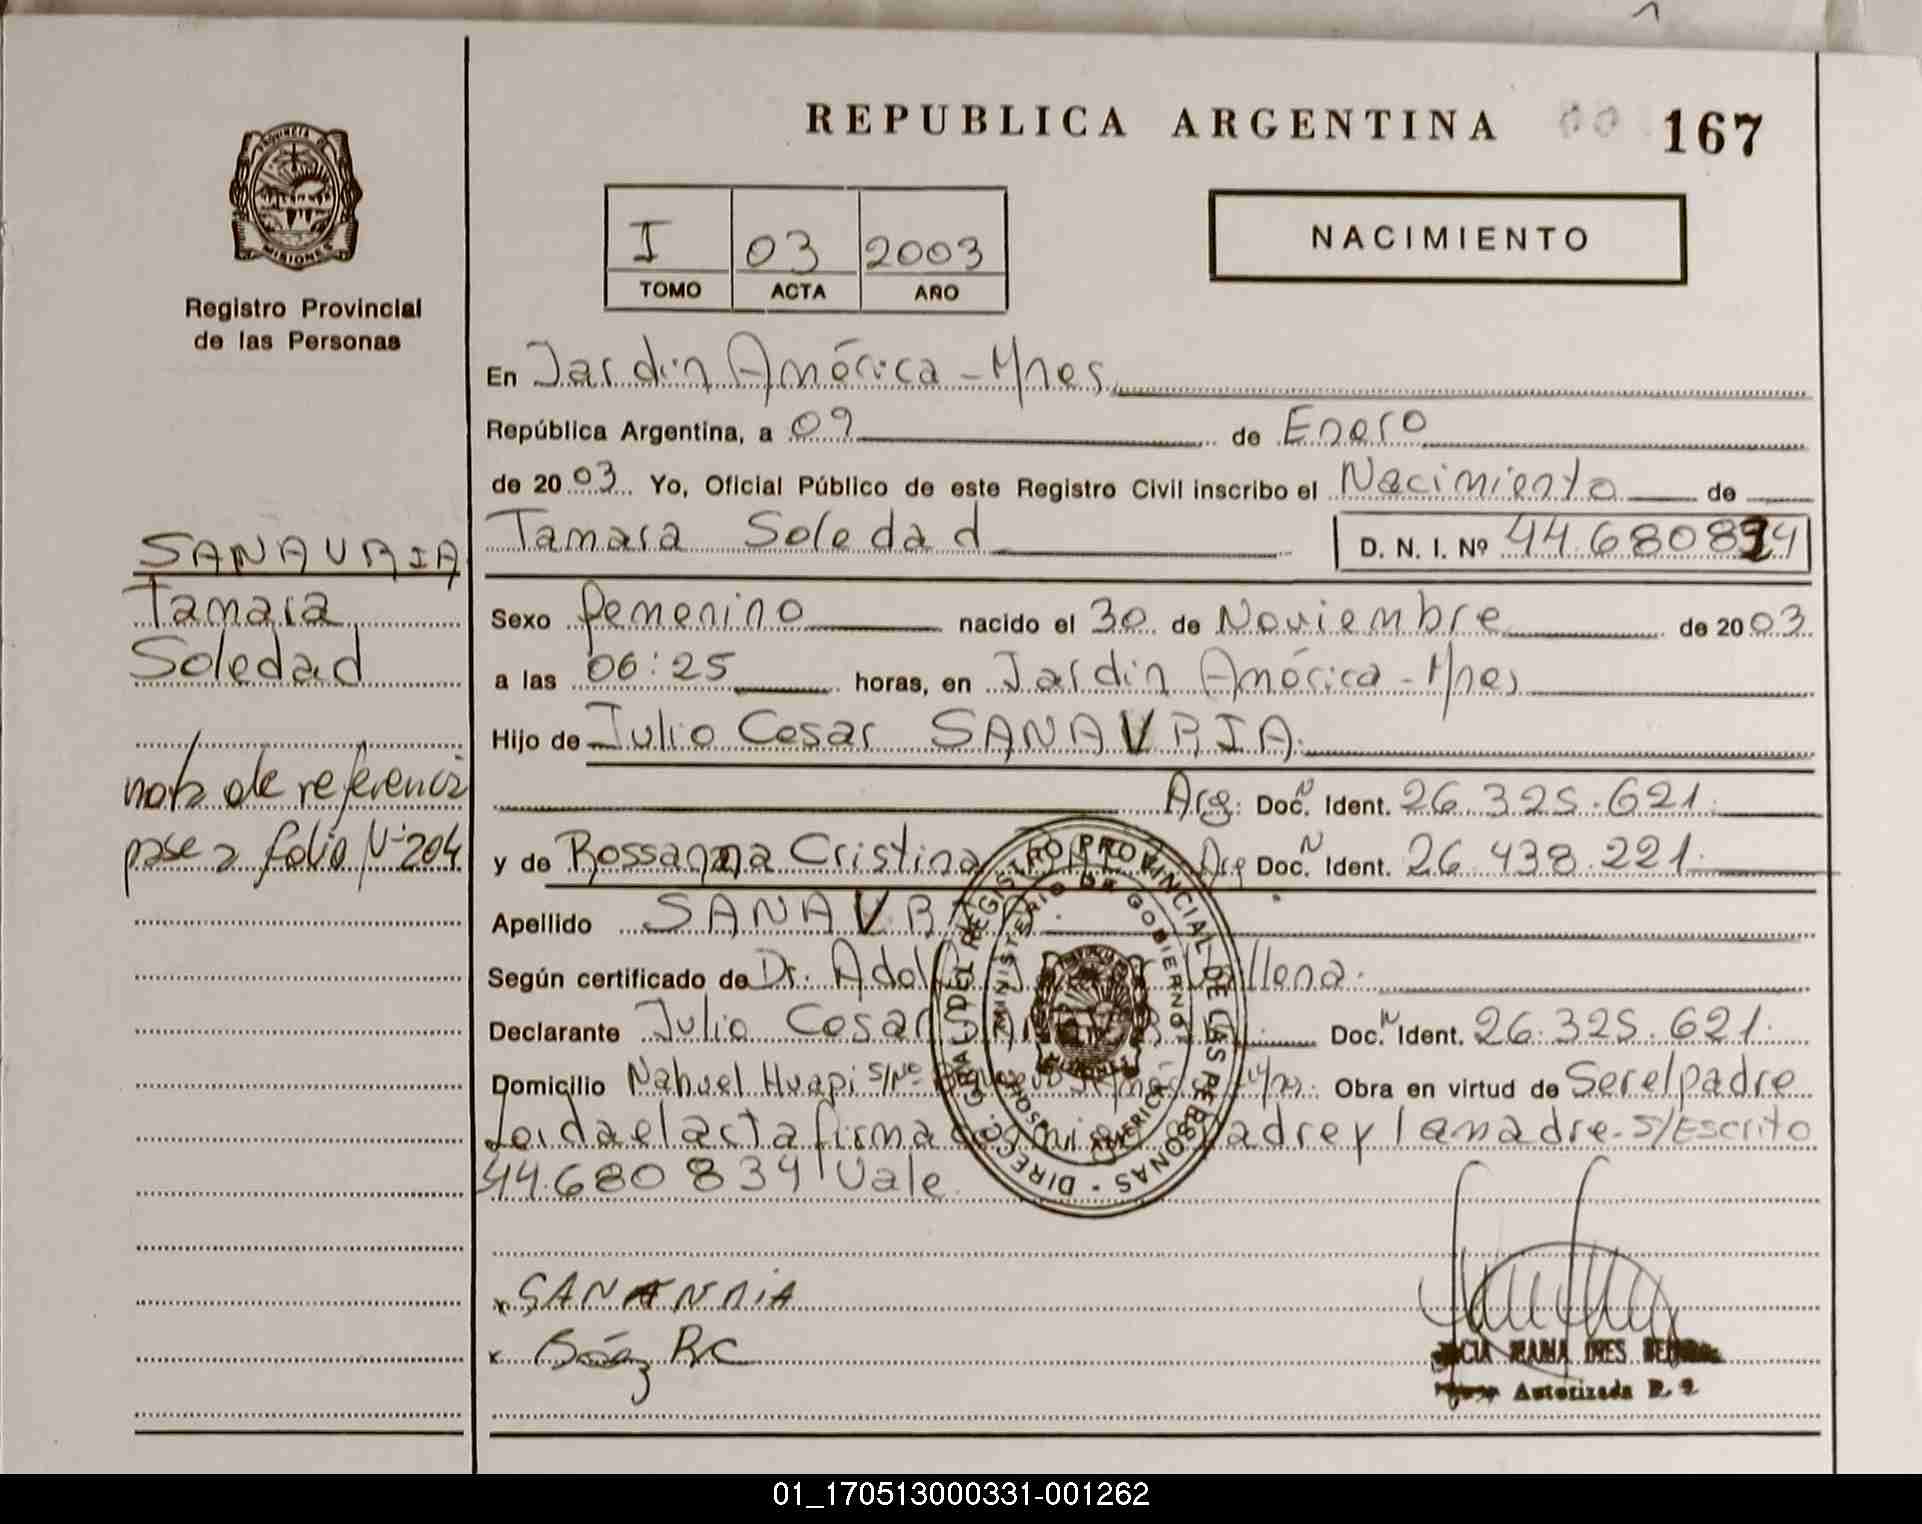 REPUBLICA ARGENTINA 167
PROVINCIA DE
MISIONES
Registro Provincial
de las Personas
I 03 2003
TOMO ACTA AÑO
NACIMIENTO
En Jardin América - Mnes
República Argentina, a 09 de Enero
de 2003. Yo, Oficial Público de este Registro Civil inscribo el Nacimiento de
Tamara Soledad D. N. I. Nº 44.680834
SANAVRIA
Tamara
Soledad
Sexo femenino nacido el 30 de Noviembre de 2003
a las 06:25 horas, en Jardin América - Mnes
Hijo de Julio Cesar SANAVRIA.
Arg. Doc. N Ident. 26.325.621.
y de Rossanna Cristina Arg Doc. N Ident. 26.438.221.
nota de referencia
pase a folio Nº 204
Apellido SANAVRIA
Según certificado de Dr. Adolfo Villena.
Declarante Julio Cesar Doc. N Ident. 26.325.621.
Domicilio Nahuel Huapi S/Nº Mnes. Obra en virtud de Ser el padre
Leida el acta firma el padre y la madre. S/Escrito
44.680834 Vale
DIRECC. GRAL. DEL REGISTRO PROVINCIAL DE LAS PERSONAS
MINISTERIO DE GOBIERNO
AMERICA
x SANANRIA
x Báez R C
MARIA INES
Autorizada
01_170513000331-001262